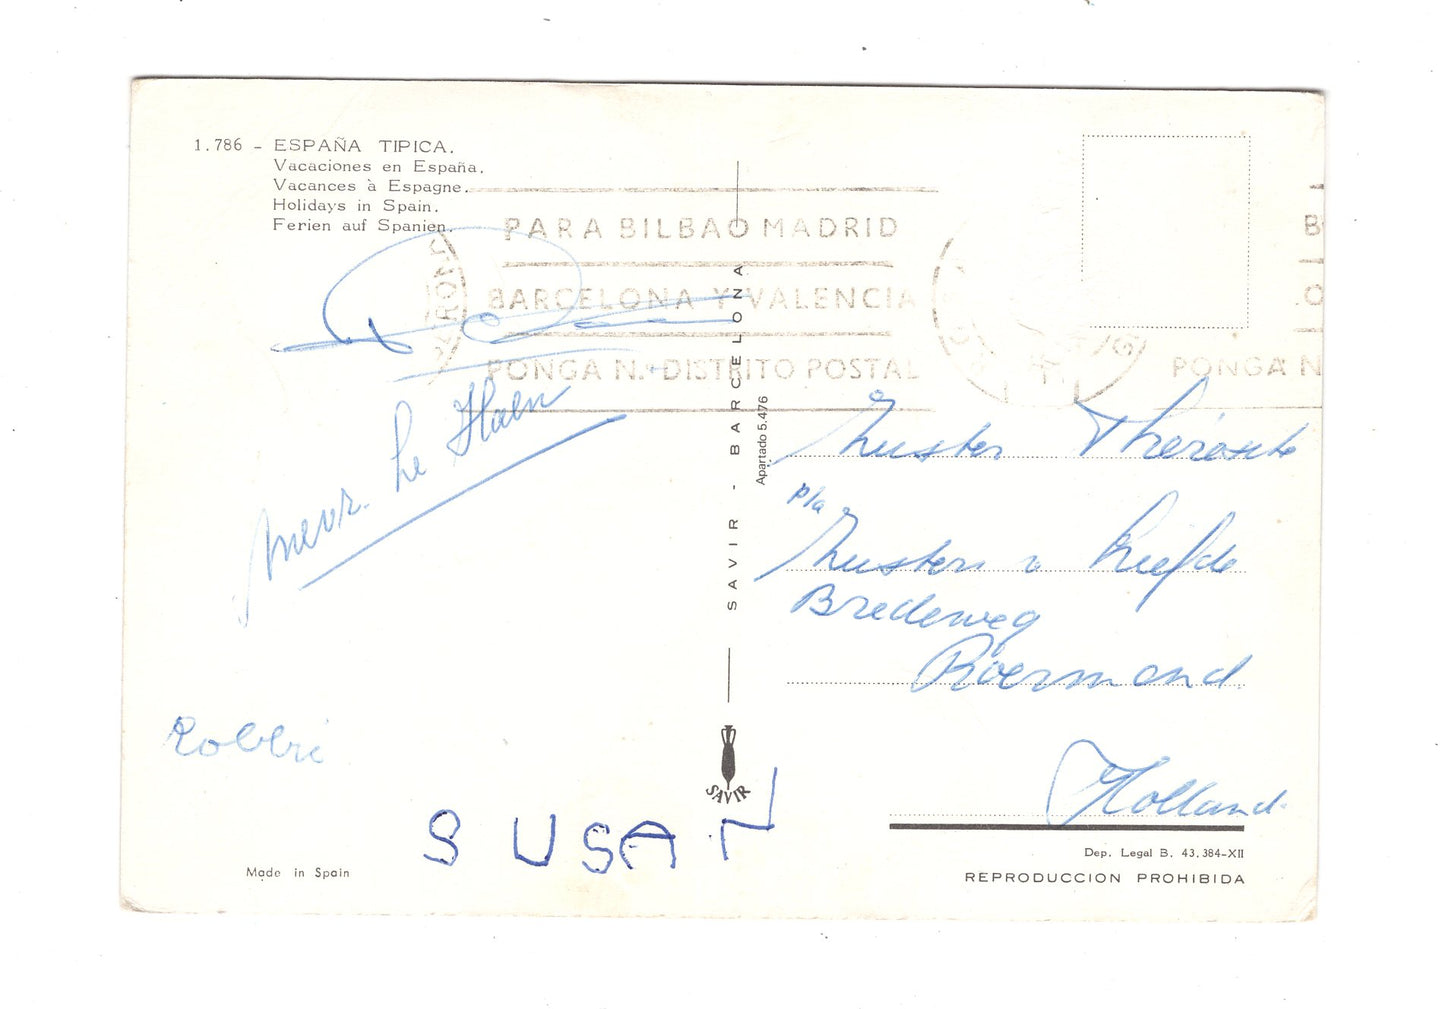 1.786 - ESPAÑA TIPICA.
Vacaciones en España.
Vacances à Espagne.
Holidays in Spain.
Ferien auf Spanien.
PARA BILBAO MADRID
BARCELONA Y VALENCIA
PONGA N.º DISTRITO POSTAL
PONGA N
mevr. de Haen
Robbri
SUSAN
SAVIR - BARCELONA
Apartado 5.476
SAVIR
Zuster
p/a
Zusters v Liefde
Bredeweg
Roermond
Holland
Made in Spain
Dep. Legal B. 43.384-XII
REPRODUCCION PROHIBIDA